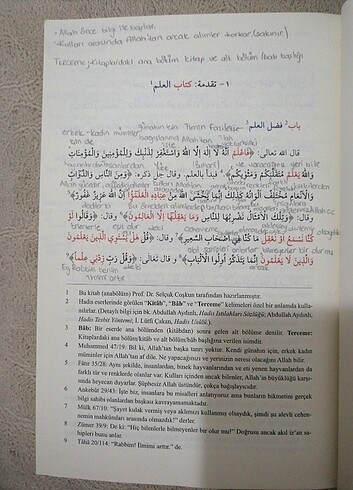 • Allah önce bilgi ile başladı.
• Kulları arasında Allah'tan ancak alimler korkar. (sakınır)
Terceme; Kitaplardaki ana bölüm kitap ve alt bölüm/bab başlığı
١- تقدمة: كتاب العلم¹
باب² فضل العلم³
قال الله تعالى: ﴿فَاعْلَمْ أَنَّهُ لَا إِلٰهَ إِلَّا اللهُ وَاسْتَغْفِرْ لِذَنْبِكَ وَلِلْمُؤْمِنِينَ وَالْمُؤْمِنَاتِ
وَاللهُ يَعْلَمُ مُتَقَلَّبَكُمْ وَمَثْوَاكُمْ﴾⁴ فبدأ بالعلم. وقال جل ذكره: ﴿وَمِنَ النَّاسِ وَالدَّوَابِّ
وَالْأَنْعَامِ مُخْتَلِفٌ أَلْوَانُهُ كَذٰلِكَ إِنَّمَا يَخْشَى اللهَ مِنْ عِبَادِهِ الْعُلَمَاءُ إِنَّ اللهَ عَزِيزٌ غَفُورٌ﴾⁵
وقال: ﴿وَتِلْكَ الْأَمْثَالُ نَضْرِبُهَا لِلنَّاسِ وَمَا يَعْقِلُهَا إِلَّا الْعَالِمُونَ﴾⁶ وقال: ﴿وَقَالُوا لَوْ
كُنَّا نَسْمَعُ أَوْ نَعْقِلُ مَا كُنَّا فِي أَصْحَابِ السَّعِيرِ﴾⁷ وقال: ﴿قُلْ هَلْ يَسْتَوِي الَّذِينَ يَعْلَمُونَ
وَالَّذِينَ لَا يَعْلَمُونَ إِنَّمَا يَتَذَكَّرُ أُولُوا الْأَلْبَابِ﴾⁸ وقال: ﴿وَقُلْ رَبِّ زِدْنِي عِلْمًا﴾⁹
Ey Rabbim benim
ilmimi arttır
1 Bu kitab (anabölüm) Prof. Dr. Selçuk Coşkun tarafından hazırlanmıştır.
2 Hadis eserlerinde görülen "Kitâb", "Bâb" ve "Terceme" kelimeleri özel bir anlamda kulla-
nılırlar. (Detaylı bilgi için bk: Abdullah Aydınlı, Hadis Istılahları Sözlüğü; Abdullah Aydınlı,
Hadis Tesbit Yöntemi; İ. Lütfi Çakan, Hadis Usûlü.).
3 Bâb: Bir eserde ana bölümden (kitâbdan) sonra gelen alt bölüme denilir. Terceme:
Kitaplardaki ana bölüm/kitâb ve alt bölüm/bâb başlığına verilen isimdir.
4 Muhammed 47/19: Bil ki, Allah'tan başka tanrı yoktur. Kendi günahın için, erkek kadın
müminler için Allah'tan af dile. Ne yapacağınızı ve yerinizin neresi olacağını Allah bilir.
5 Fâtır 35/28: Aynı şekilde, insanlardan, binek hayvanlarından ve eti yenen hayvanlardan da
farklı tür ve renklerde olanlar var. Kulları içinden ancak bilenler, Allah'ın büyüklüğü karşı-
sında heyecan duyarlar. Şüphesiz Allah üstündür, çokça bağışlayıcıdır.
6 Ankebût 29/43: İşte biz, insanlara bu misalleri anlatıyoruz ama bunların hikmetini gerçek
bilgi sahibi olanlardan başkası kavrayamamaktadır.
7 Mülk 67/10: "Şayet kulak vermiş veya aklımızı kullanmış olsaydık, şimdi şu alevli cehen-
nemin mahkûmları arasında olmazdık!" derler.
8 Zümer 39/9: De ki: "Hiç bilenlerle bilmeyenler bir olur mu!" Doğrusu ancak akıl iz'an sa-
hipleri bunu anlar.
9 Tâhâ 20/114: "Rabbim! İlmimi arttır." de.